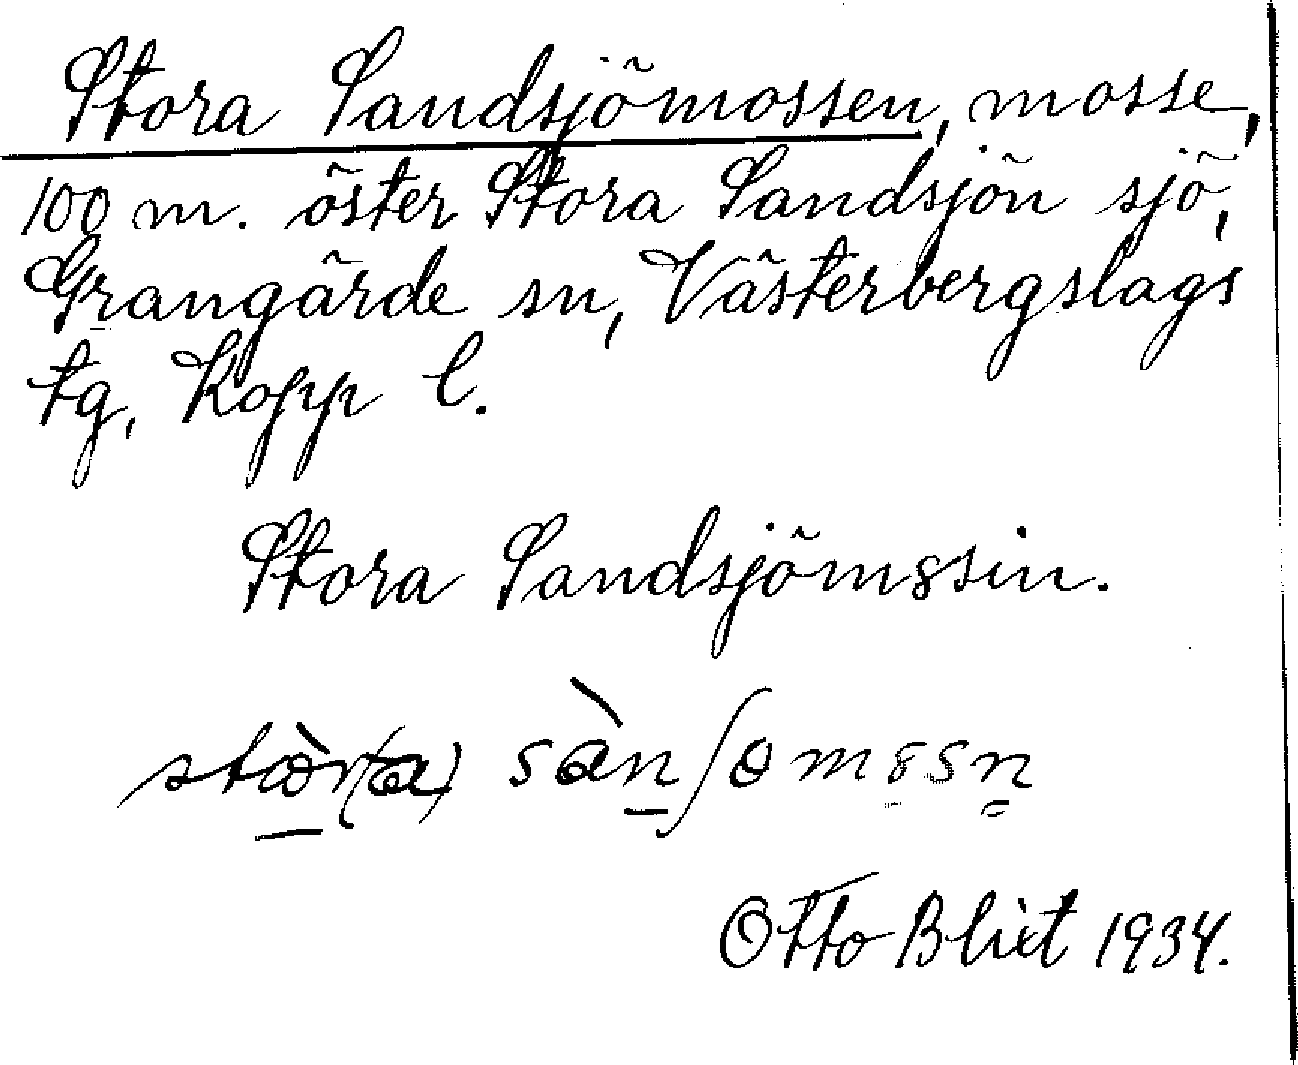 Stora Sandsjömossen, mosse,
100 m. öster Stora Sandsjön sjö,
Grangärde sn, Västerbergslags
tg, Kopp l.
Stora Sandsjöm8sin.
Otto Blixt 1934.